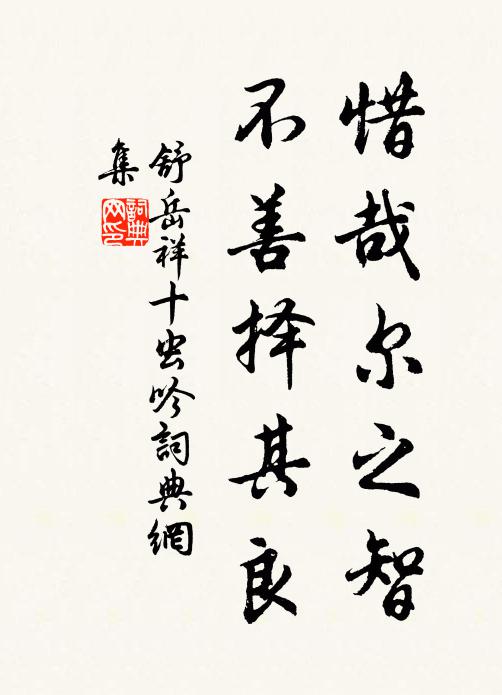 惜哉尔之智
不善择其良
舒岳祥十虫吟詞典網
集
詞典網印